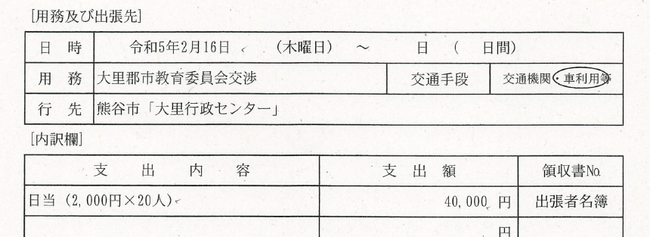 [用務及び出張先]
日 時 令和5年2月16日 (木曜日) ～ 日 ( 日間)
用 務 大里郡市教育委員会交渉 交通手段 交通機関・車利用等
行 先 熊谷市「大里行政センター」
[内訳欄]
支 出 内 容 支 出 額 領収書No.
日当 (2,000円×20人) 40,000 円 出張者名簿
円